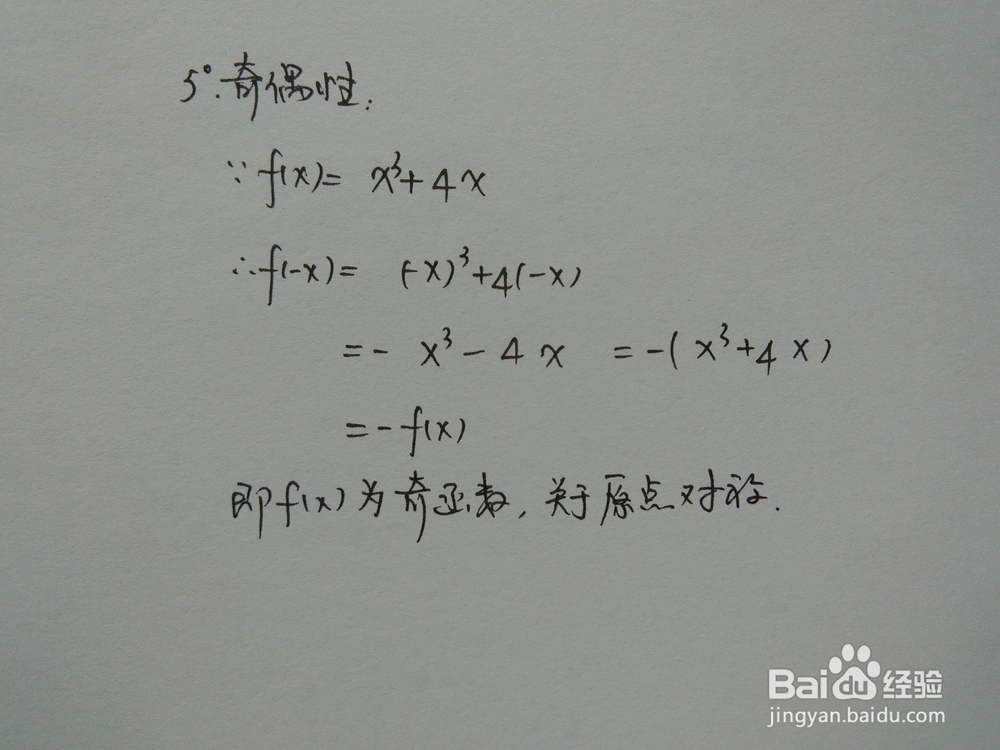 5°.奇偶性:
∵f(x)= x³+4x
∴f(-x)= (-x)³+4(-x)
=- x³-4x =-(x³+4x)
=-f(x)
即f(x)为奇函数,关于原点对称.
Baidu经验
jingyan.baidu.com